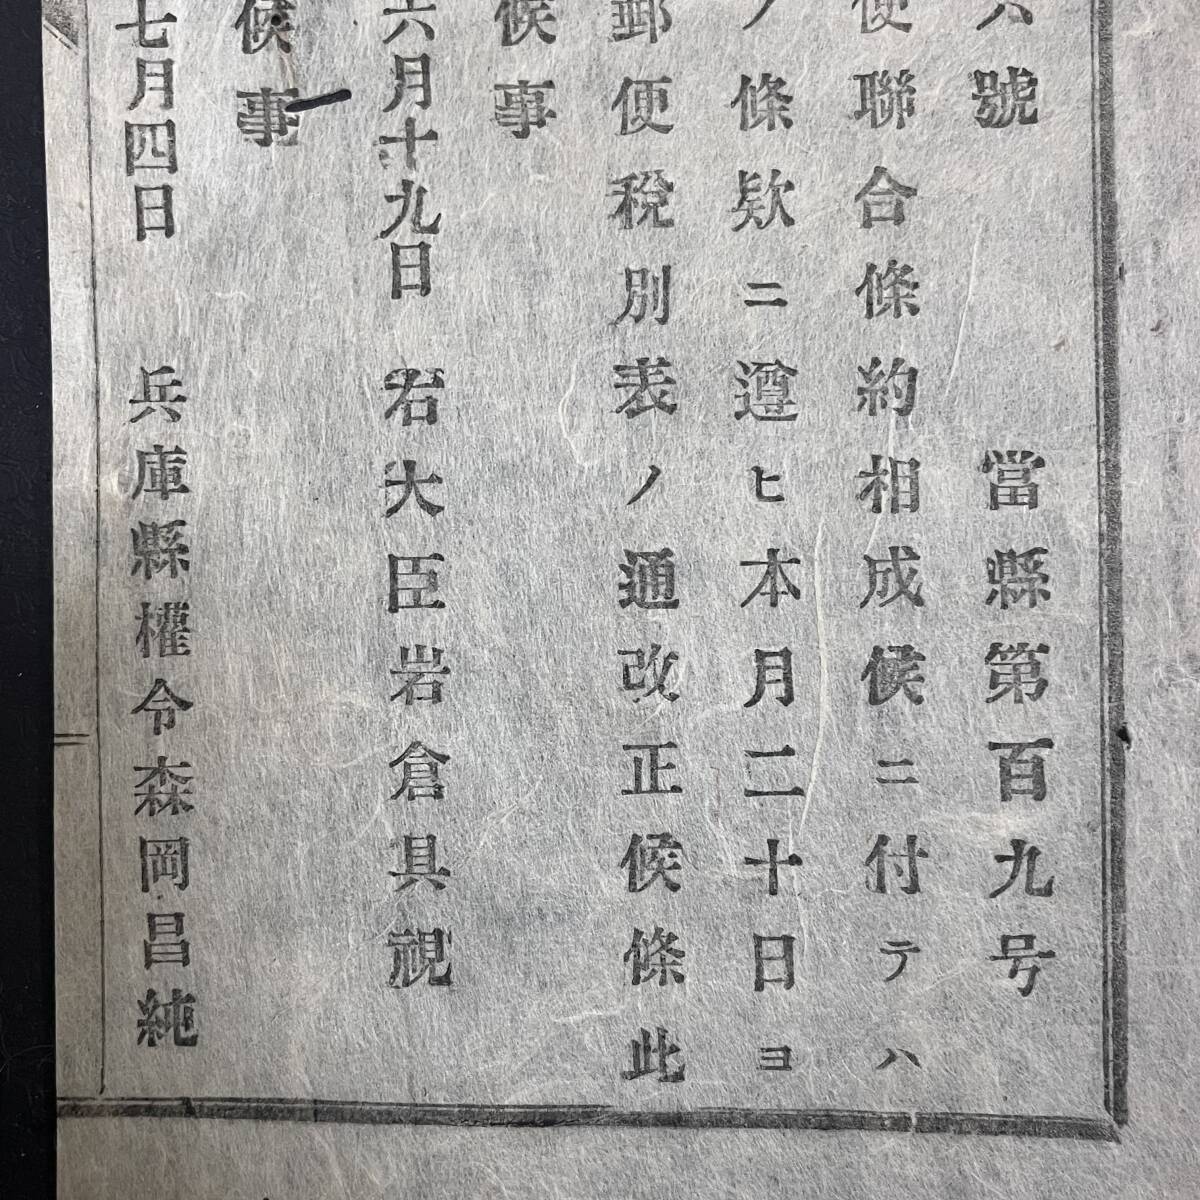 八號 當縣第百九号
便聯合條約相成候ニ付テハ
ノ條欵ニ遵ヒ本月二十日ヨ
郵便税別表ノ通改正候條此
候事
六月十九日 右大臣岩倉具視
候事
七月四日 兵庫縣權令森岡昌純